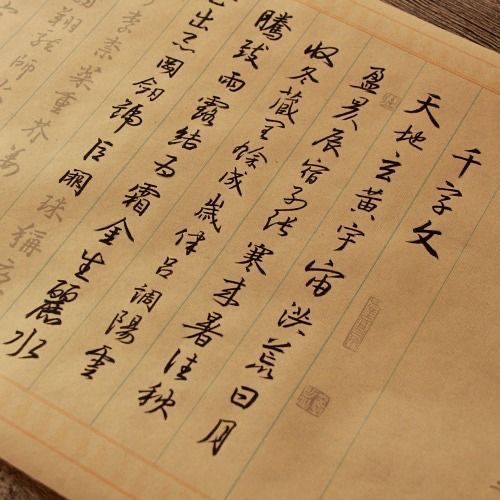 千字文
天地玄黃宇宙洪荒日月
盈昃辰宿列張寒來暑往秋
收冬藏閏餘成歲律呂調陽雲
騰致雨露結為霜金生麗水
出崑岡劍號巨闕珠稱夜
李柰菜重芥薑
翔龍師火